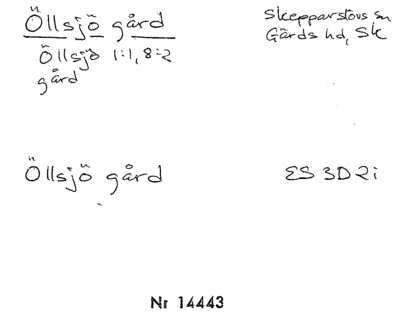 Öllsjö gård
Skepparslövs sn
Gärds hd, Sk
Öllsjö 1:1, 8:2
gård
Öllsjö gård
ES 3D2i
Nr 14443